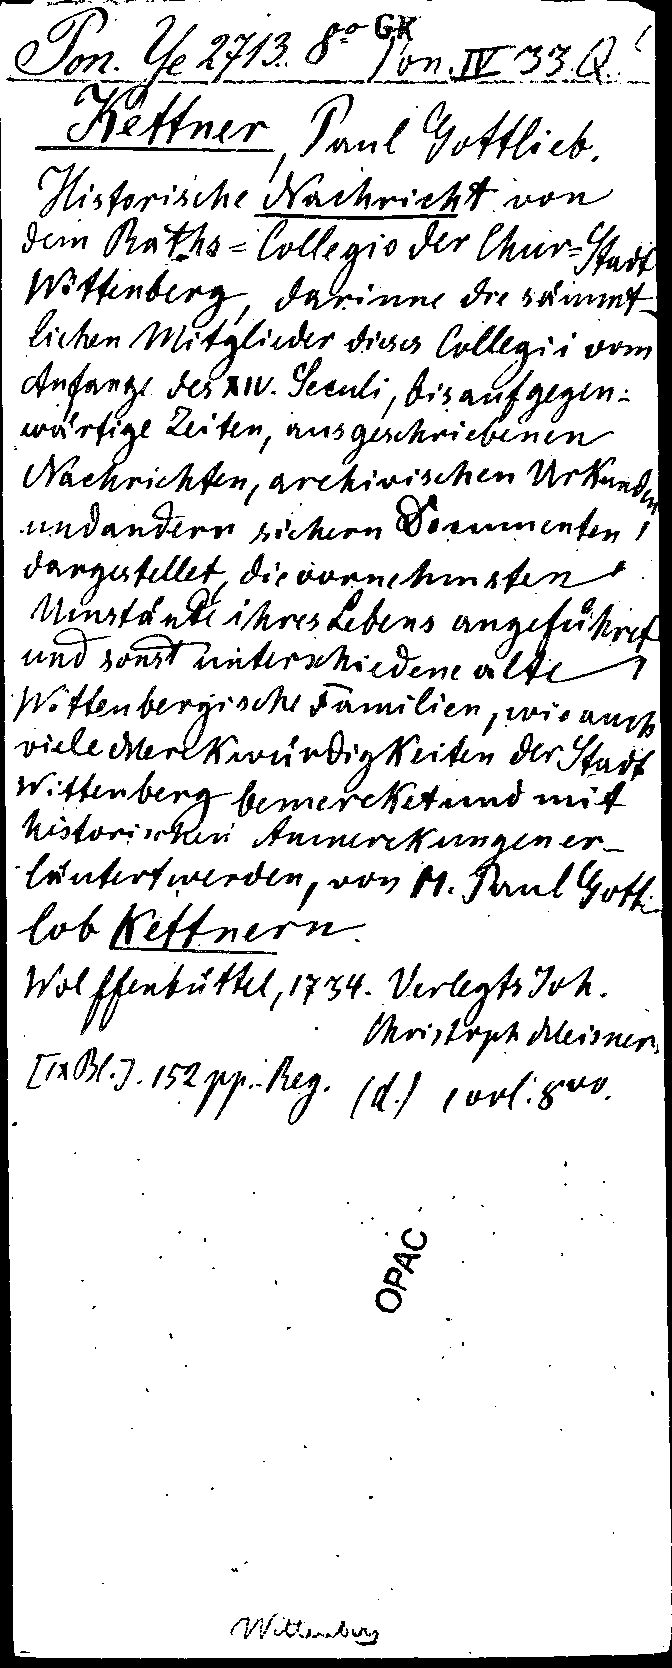 Pon. Ye 2713. 8° GK Pon. IV 33. Q.
Kettner, Paul Gottlieb.
Historische Nachricht von
dem Raths=Collegio der Chur=Stadt
Wittenberg, darinne die sämmt-
lichen Mitglieder dieses Collegii vom
Anfange des XIV. Seculi, bis auf gegen=
wärtige Zeiten, aus geschriebenen
Nachrichten, archivischen Urkunden
und andern sichern Documenten
dargestellet, die vornehmsten
Umstände ihres Lebens angeführet
und sonst unterschiedene alte
Wittenbergische Familien, wie auch
viele Merckwürdigkeiten der Stadt
Wittenberg bemercket und mit
historischen Anmerckungen er-
läutert werden, von M. Paul Gott-
lob Kettnern.
Wolffenbüttel, 1734. Verlegts Joh.
Christoph Meisner.
[IX Bl.]. 152 pp. Reg. (d.) 1 vol. 8vo.
OPAC
Wittenberg